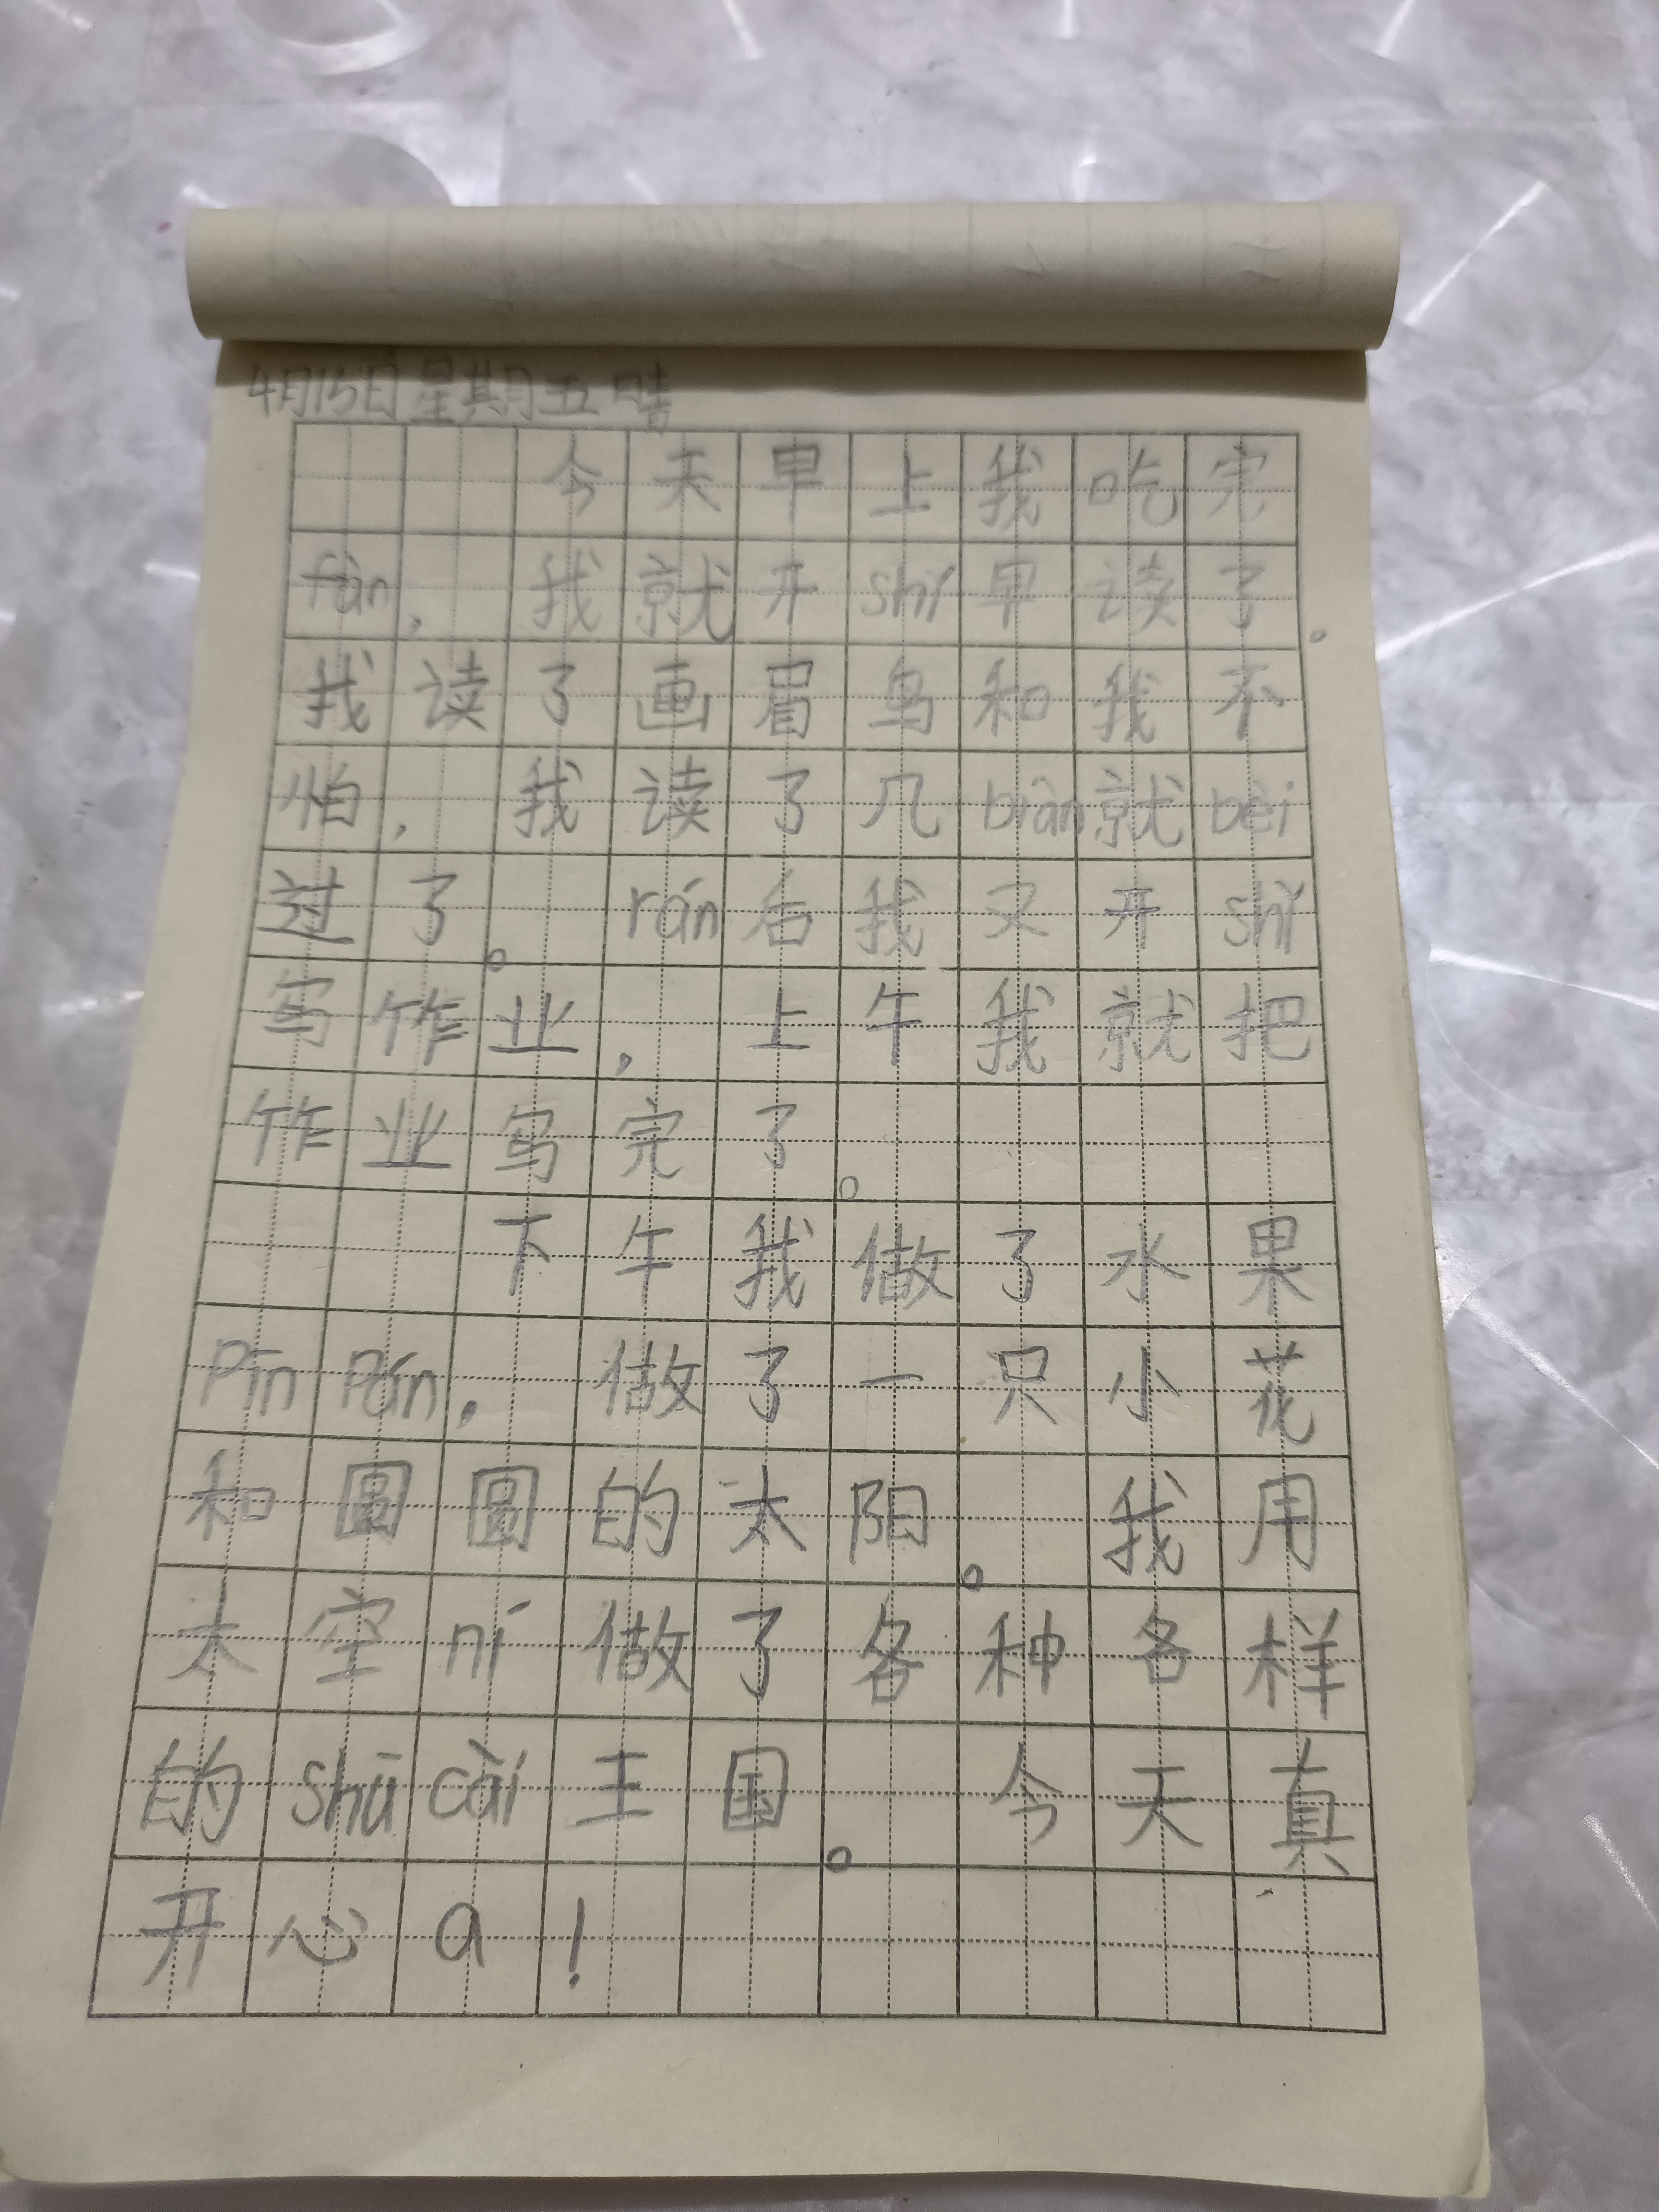 4月15日星期五晴
今天早上我吃完
fàn，我就开shǐ早读了。
我读了画眉鸟和我不
怕，我读了几biàn就bèi
过了。rán后我又开shǐ
写作业，上午我就把
作业写完了。
下午我做了水果
Pīn Pán，做了一只小花
和圆圆的太阳。我用
太空ní做了各种各样
的shū cài王国。今天真
开心a！